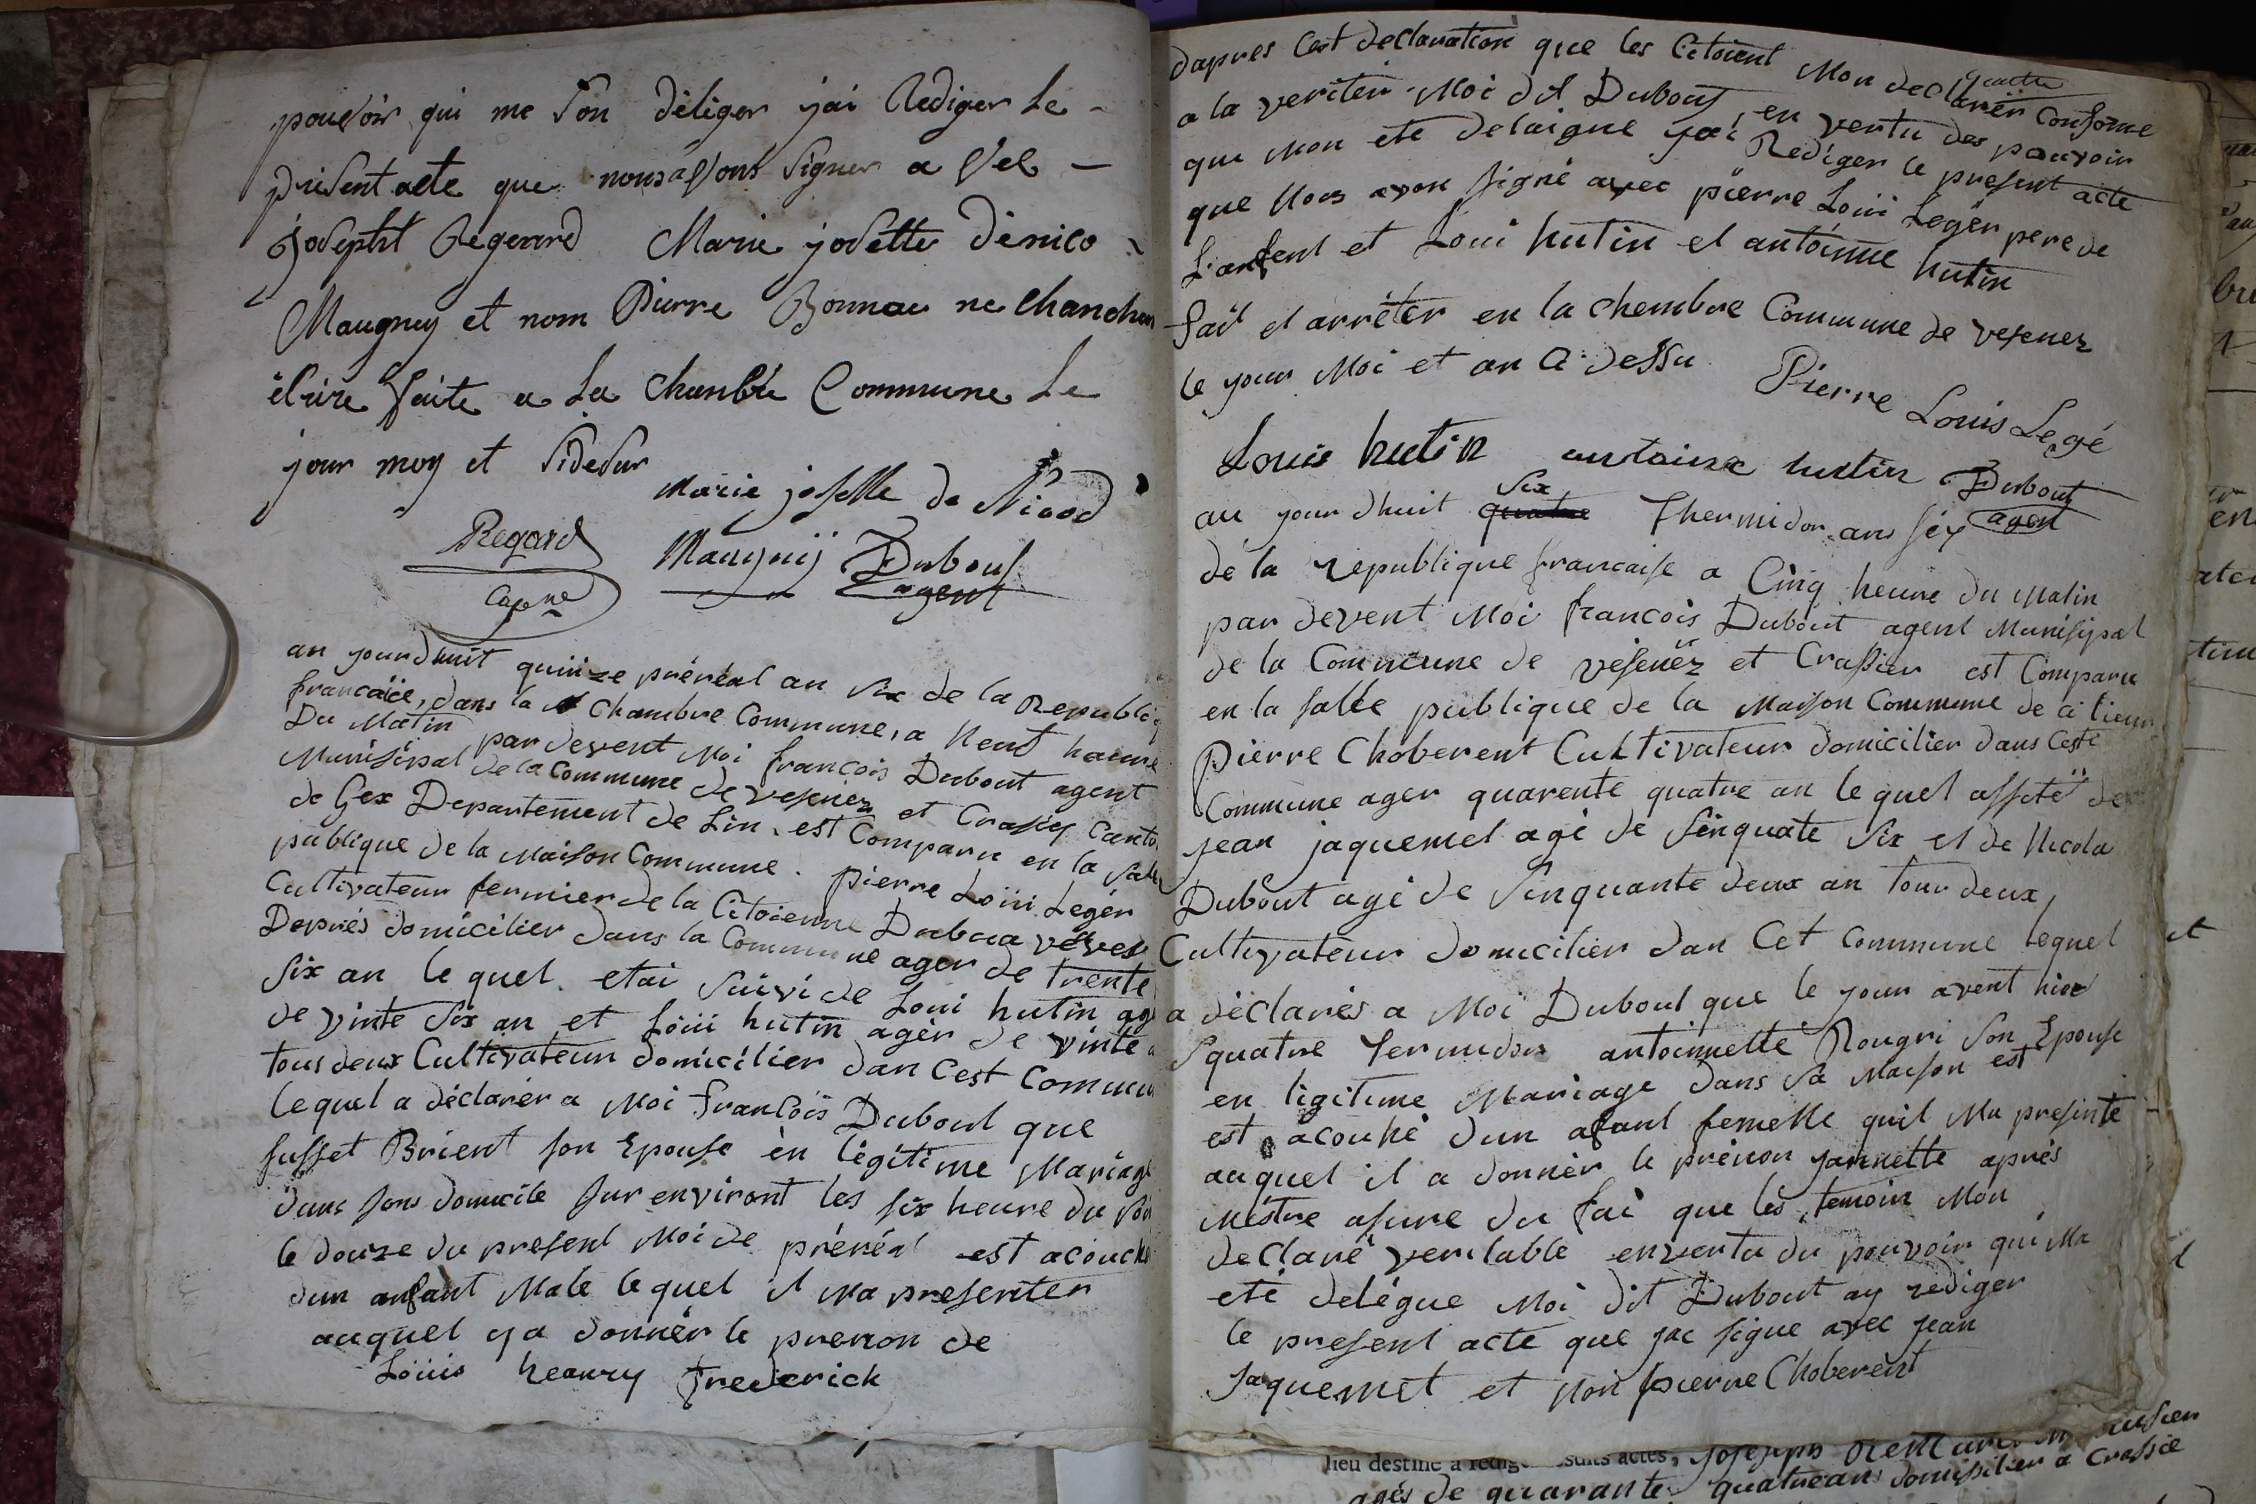 pouvoir qui me Son déléger j'ai Rediger Le
présent acte que nous avons Signer a Vec
Joseptht Regeard Marie jodette Dénico
Maugney et nom Pierre Bonnau ne
écrire faite a La chanbre Commune Le
jour moy et Sidesur
Marie josette de Nicod
Regard Maugnÿ Dubout
Cap.ne agent
au jourdhuit quinze préréal an six de la Republiq
francaïce, dans la Chambre Commune, a Neuf heure
Du Matin par devent Moi françois Dubout agent
Munisipal de la Commune de vesenez et Crassiy Canto
de Gex Departement de Lin. est Comparu en la Salle
publique de la Maison Commune. pierre Loiii Legér
Cultivateur fermier de la Citoienne Dubua
Deprés domicilier dans la Commune ager de trente
six an le quel etai Suivi de Loui hutin ag
de vinte six an et Loiii hutin agér de vinte
tous deux Cultivateur domicilier dan Cest Commun
lequel a déclarér a Moi francoïs Dubout que
susset Brient son Epouse èn légitime Mariag
dans sons domicile sur environt les six heure du Soi
le douze du present Moi de préréal est acouché
dun anfant Male lequel il Ma presenter
auquel y a donnér le prenon de
Loiiis heanry frederick
dapres Cest declaration que les Citoient Mon declarér conforme
a la veritér. Moi dit Dubout, en vertu des pouvoir
que Mon eté delaigue jai Rediger le present acte
que Nous avon signé avec pierre Loiii Legér pere de
L'anfent et Loui hutin et antoinne hutin
fait et arrêter en la chembre Commune de vesenez
le jour Moi et an Ci dessu
Pierre Louis Legé
Louis hutin antoine hutin Dubout
agent
au jourdhuit six Thermidor ans séx
de la republique francaise a Cinq heure du Matin
par devent Moi francois Dubout agent Munisipal
de la Commune de vesenëz et Crassier est Comparu
en la salle publique de la Maison Commune de ci lieu
pierre Choberent Cultivateur domicilier dans Ceste
Commune ager quarente quatre an le quel assité de
jean jaquemet agé de sinquate six et de Nicola
Dubout agé de Sinquante deux an tour deux,
Cultivateur domicilier dan Cet Commune lequel
a déclarés a Moi Dubout que le jour avent hier
quatre Termidor antoinnette Rougri son Epouse
en ligitime Mariage dans sa Maison est
est acouhé dun afant femelle quil Ma presinte
auquel il a donnér le prénon jannette aprés
Méstre asure du fai que lés temoin Mon
declaré veritable en vertu du pouvoir qui Ma
eté delégue Moi dit Dubout ay rediger
le present acte que jai signe avec jean
jaquemet et Non pierre Choberent
lieu destiné à actes, Joseph
agés de quarante quatre ans domisilier a Crassie